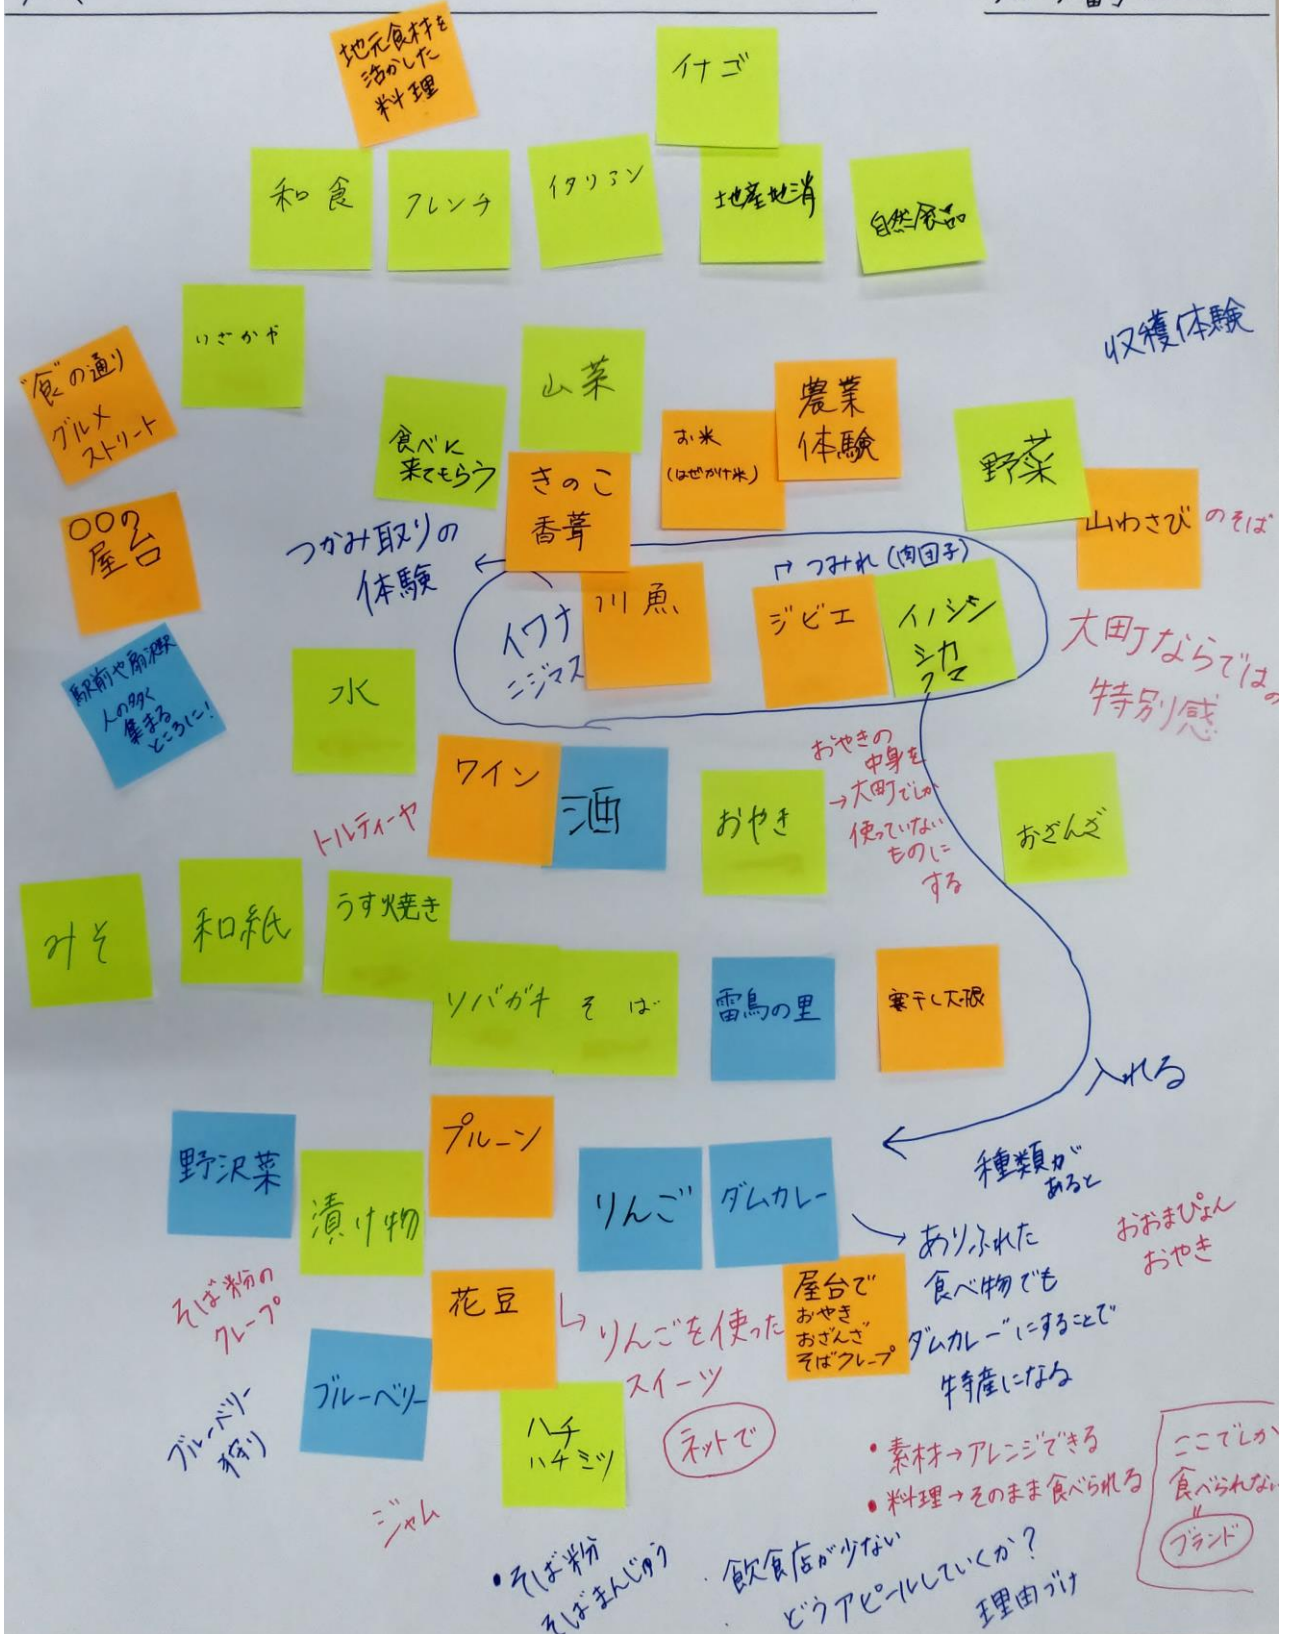 地元食材を
活かした
料理
イナゴ
和食
フレンチ
イタリアン
地産地消
自然食品
いざかや
収穫体験
"食"の通り
グルメ
ストリート
山菜
食べに
来てもらう
お米
(はぜかけ米)
農業
体験
野菜
きのこ
香茸
山わさび
のそば
〇〇の
屋台
つかみ取りの
体験
つみれ(肉団子)
イワナ
ニジマス
川魚
ジビエ
イノシシ
シカ
クマ
大町ならではの
特別感
駅前や扇沢駅
人の多く
集まる
ところに!
水
ワイン
酒
トルティーヤ
おやき
おやきの
中身を
→大町でしか
使っていない
ものに
する
おざんざ
みそ
和紙
うす焼き
ソバガキ
そば
雷鳥の里
寒干し大根
入れる
野沢菜
漬け物
プルーン
りんご
ダムカレー
種類が
あると
ありふれた
食べ物でも
ダムカレーにすることで
特産になる
おおまぴょん
おやき
そば粉の
クレープ
花豆
りんごを使った
スイーツ
屋台で
おやき
おざんざ
そばクレープ
ブルーベリー
ブルーベリー
狩り
ハチ
ハチミツ
ネットで
ジャム
・素材→アレンジできる
・料理→そのまま食べられる
ここでしか
食べられない
"
ブランド
・そば粉
そばまんじゅう
・飲食店が少ない
・どうアピールしていくか?
理由づけ